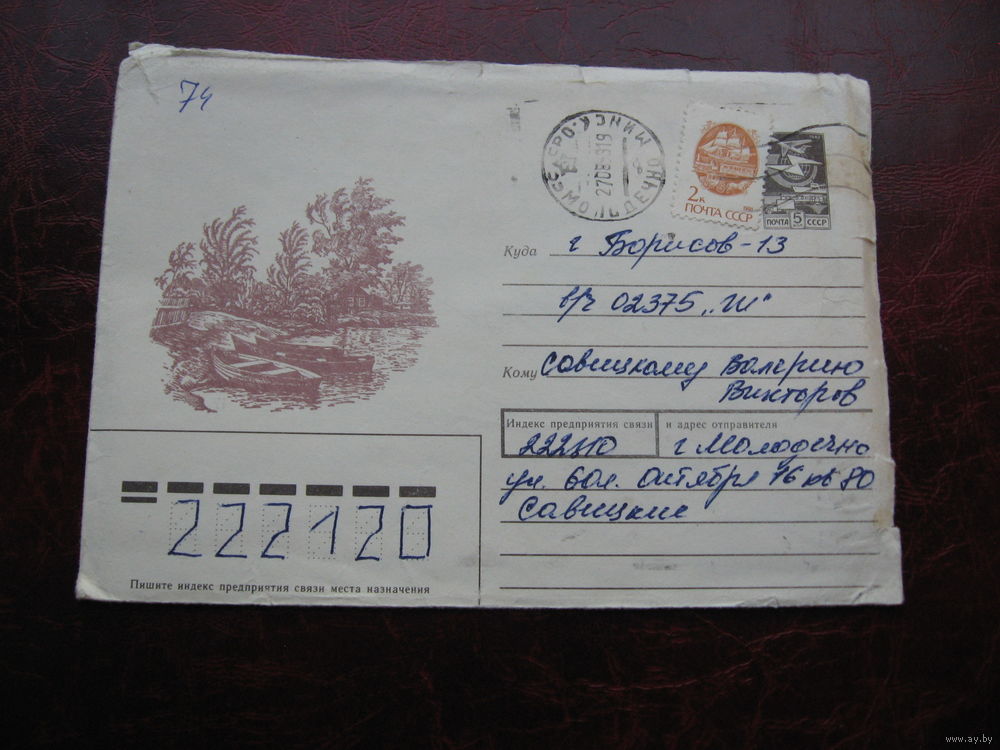 74
МИНСК
МОЛОДЕЧНО
270891 19
2к
ПОЧТА СССР
ПОЧТА 5 СССР
Куда г Борисов-13
в/ч 02375 „Ш"
Кому Савицкому Валерию
Викторов
Индекс предприятия связи и адрес отправителя
г Молодечно
ул. 60л. Октября 16 кв 80
Савицкие
222120
Пишите индекс предприятия связи места назначения
www.ay.by